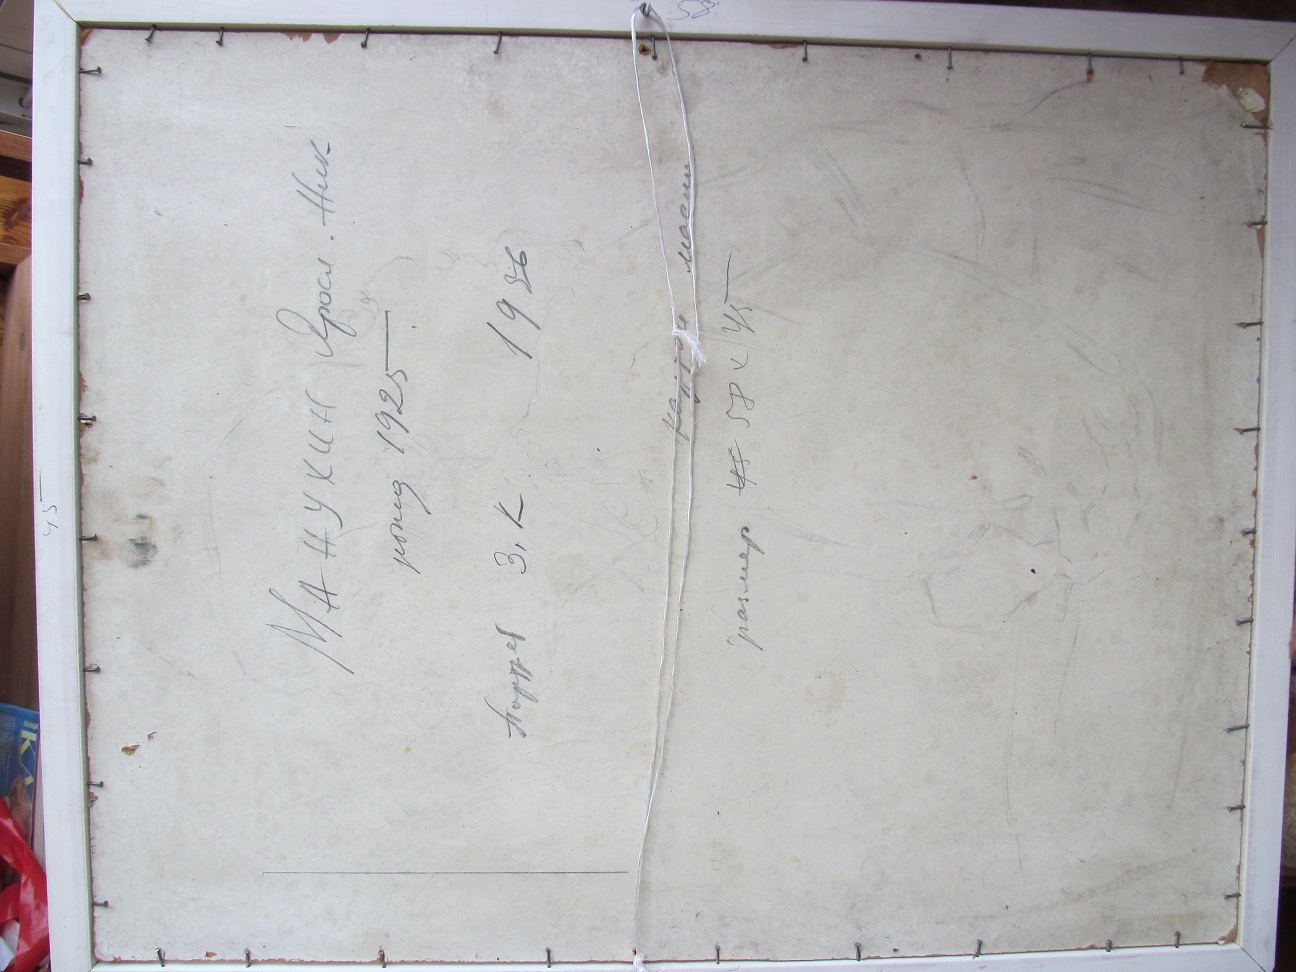 МАНУХИН Яросл. Ник
рожд 1925
Портрет З.К. 1956
картон масло
размер 45 58 х 45
58
45